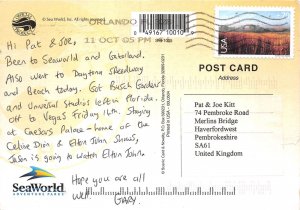 © Sea World, Inc.
ORLANDO
11 OCT 05 PM
0 49167 10010 9
USA
Hi Pat & Joe,
Been to Seaworld and Gatorland.
Also went to Daytona Speedway
and Beach today. Got Busch Gardens
and Universal Studios left in Florida.
Off to Vegas Friday 14th. Staying
at Caesars Palace - home of the
Celine Dion & Elton John Shows,
Jason is going to watch Elton John.
Hope you are all
well.
GARY.
POST CARD
Address
Pat & Joe Kitt
74 Pembroke Road
Merlins Bridge
Haverfordwest
Pembrokeshire
SA61
United Kingdom
SeaWorld
ADVENTURE PARKS